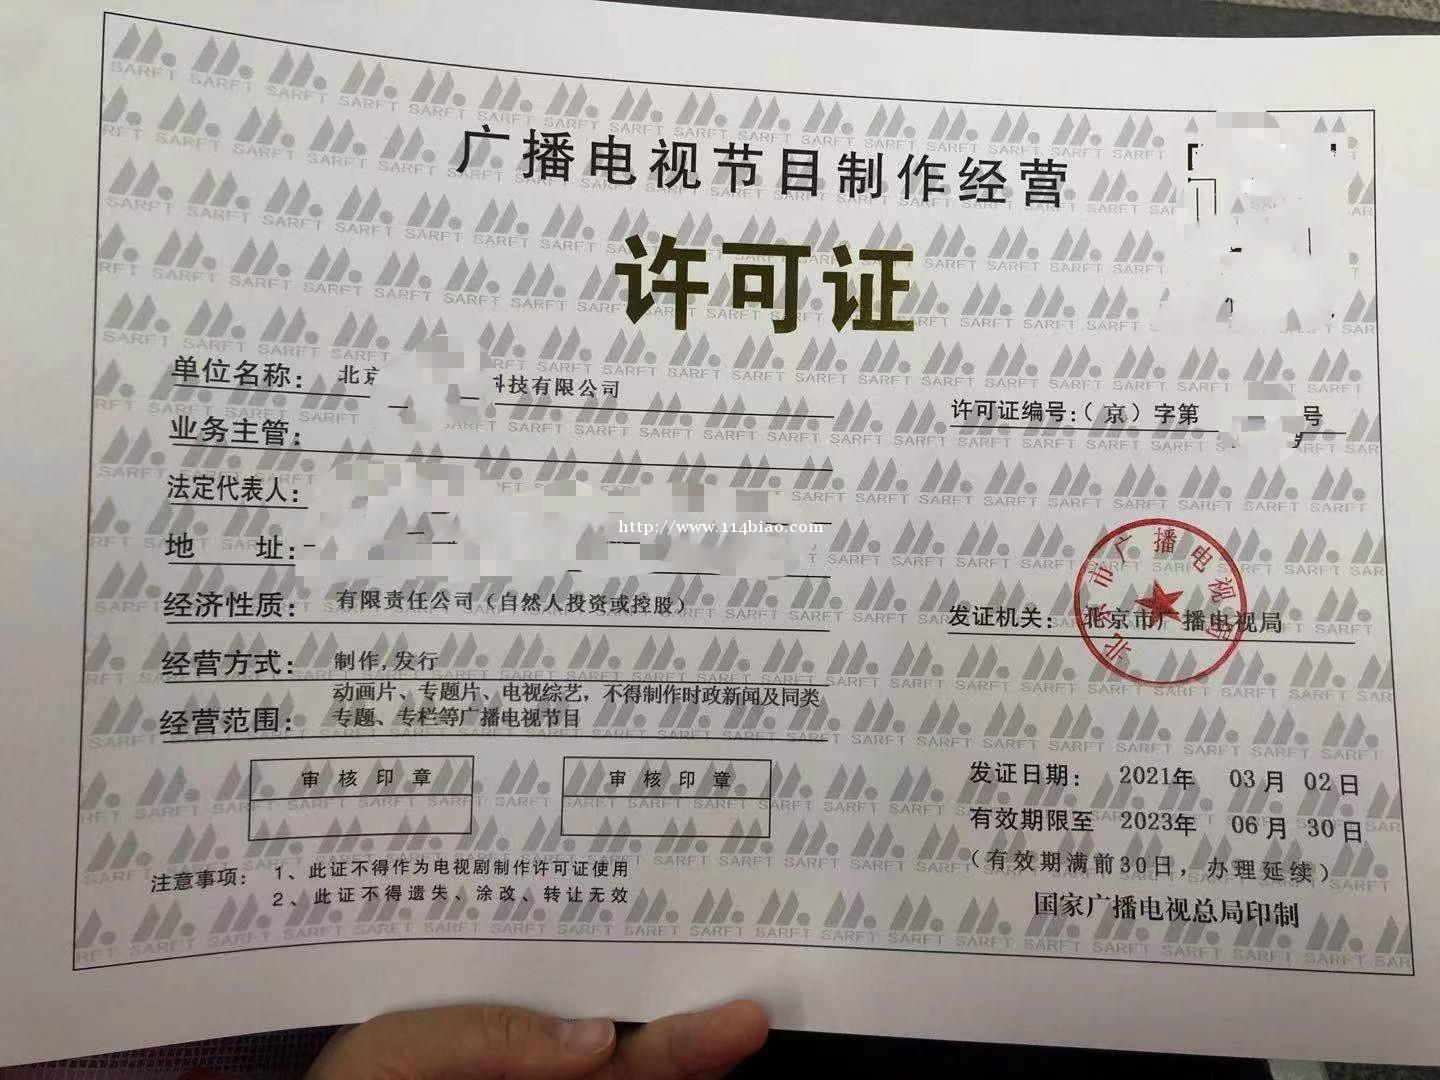 广播电视节目制作经营
许可证
单位名称：北京 科技有限公司
许可证编号：（京）字第 号
业务主管：
法定代表人：
http://www.114biao.com
地 址：
经济性质：有限责任公司（自然人投资或控股）
发证机关：北京市广播电视局
北京市广播电视局
经营方式：制作,发行
经营范围：动画片、专题片、电视综艺，不得制作时政新闻及同类
专题、专栏等广播电视节目
审核印章
审核印章
发证日期：2021年 03月 02日
有效期限至 2023年 06月 30日
（有效期满前30日，办理延续）
注意事项：1、此证不得作为电视剧制作许可证使用
2、此证不得遗失、涂改、转让无效
国家广播电视总局印制
SARFT